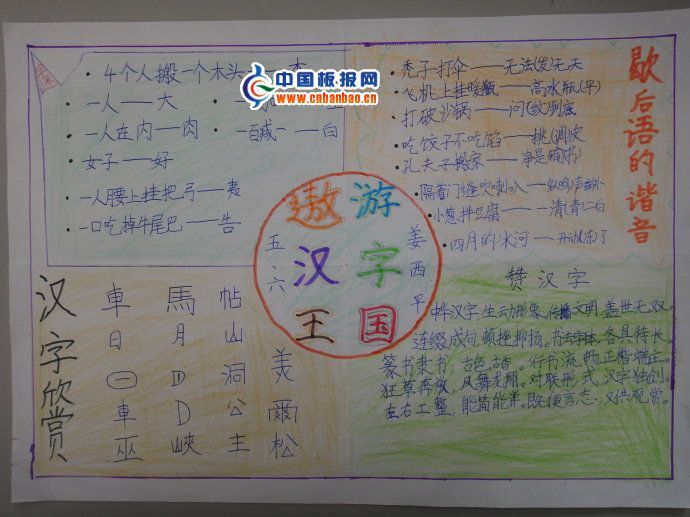 中国板报网
www.cnbanbao.cn
4个人搬一个木头
一人——大
一人在内——肉
百减一——白
女子——好
一人腰上挂把弓——夷
一口吃掉牛尾巴——告
秃子打伞——无法(发)无天
飞机上挂暖瓶——高水瓶(平)
打破沙锅——问(纹)到底
吃饺子不吃馅——调皮
孔夫子搬家——净是
隔着门缝吹喇叭——
小葱拌豆腐——一清(青)二白
四月的冰河——开动(冻)了
歇后语的谐音
遨游
汉字
王国
五.六
姜西平
汉字欣赏
車 馬 帖
日 月 山 美
洞
車 D 公 爾
巫 峽 主 松
赞汉字
中华汉字,生动形象,传播文明,盖世无双。
连缀成句,顿挫抑扬。书法字体,各具特长。
篆书隶书,古色古香。行书流畅,正楷端庄。
狂草奔放,凤舞龙翔。对联形式,汉字独创。
左右工整,能简能详。既便言志,又供观赏。